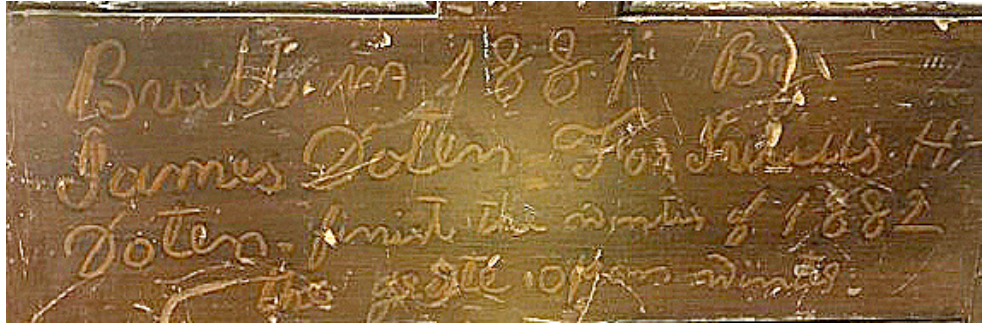 Built in 1881 By
James Doten For Julius H.
Doten finish the winter of 1882
the open winter.